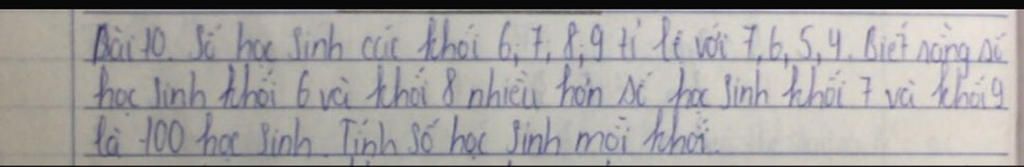 Bài 10. Số học sinh các khối 6, 7, 8, 9 tỉ lệ với 7, 6, 5, 4. Biết rằng số
học sinh khối 6 và khối 8 nhiều hơn số học sinh khối 7 và khối 9
là 100 học sinh. Tính số học sinh mỗi khối.